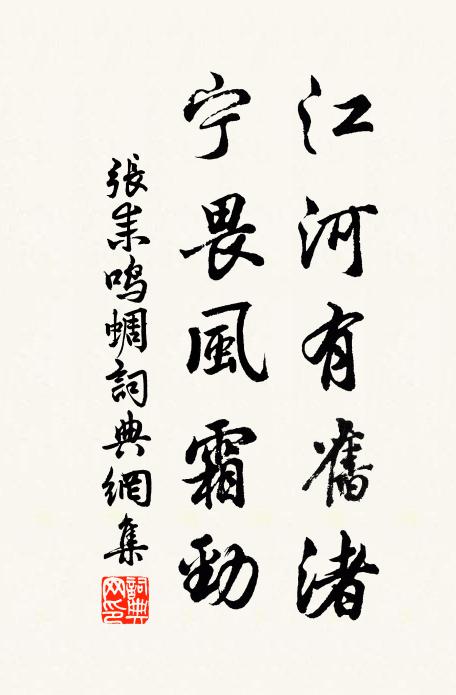 江河有舊渚
宁畏風霜勁
張耒鳴蜩詞典網集
詞典
网印